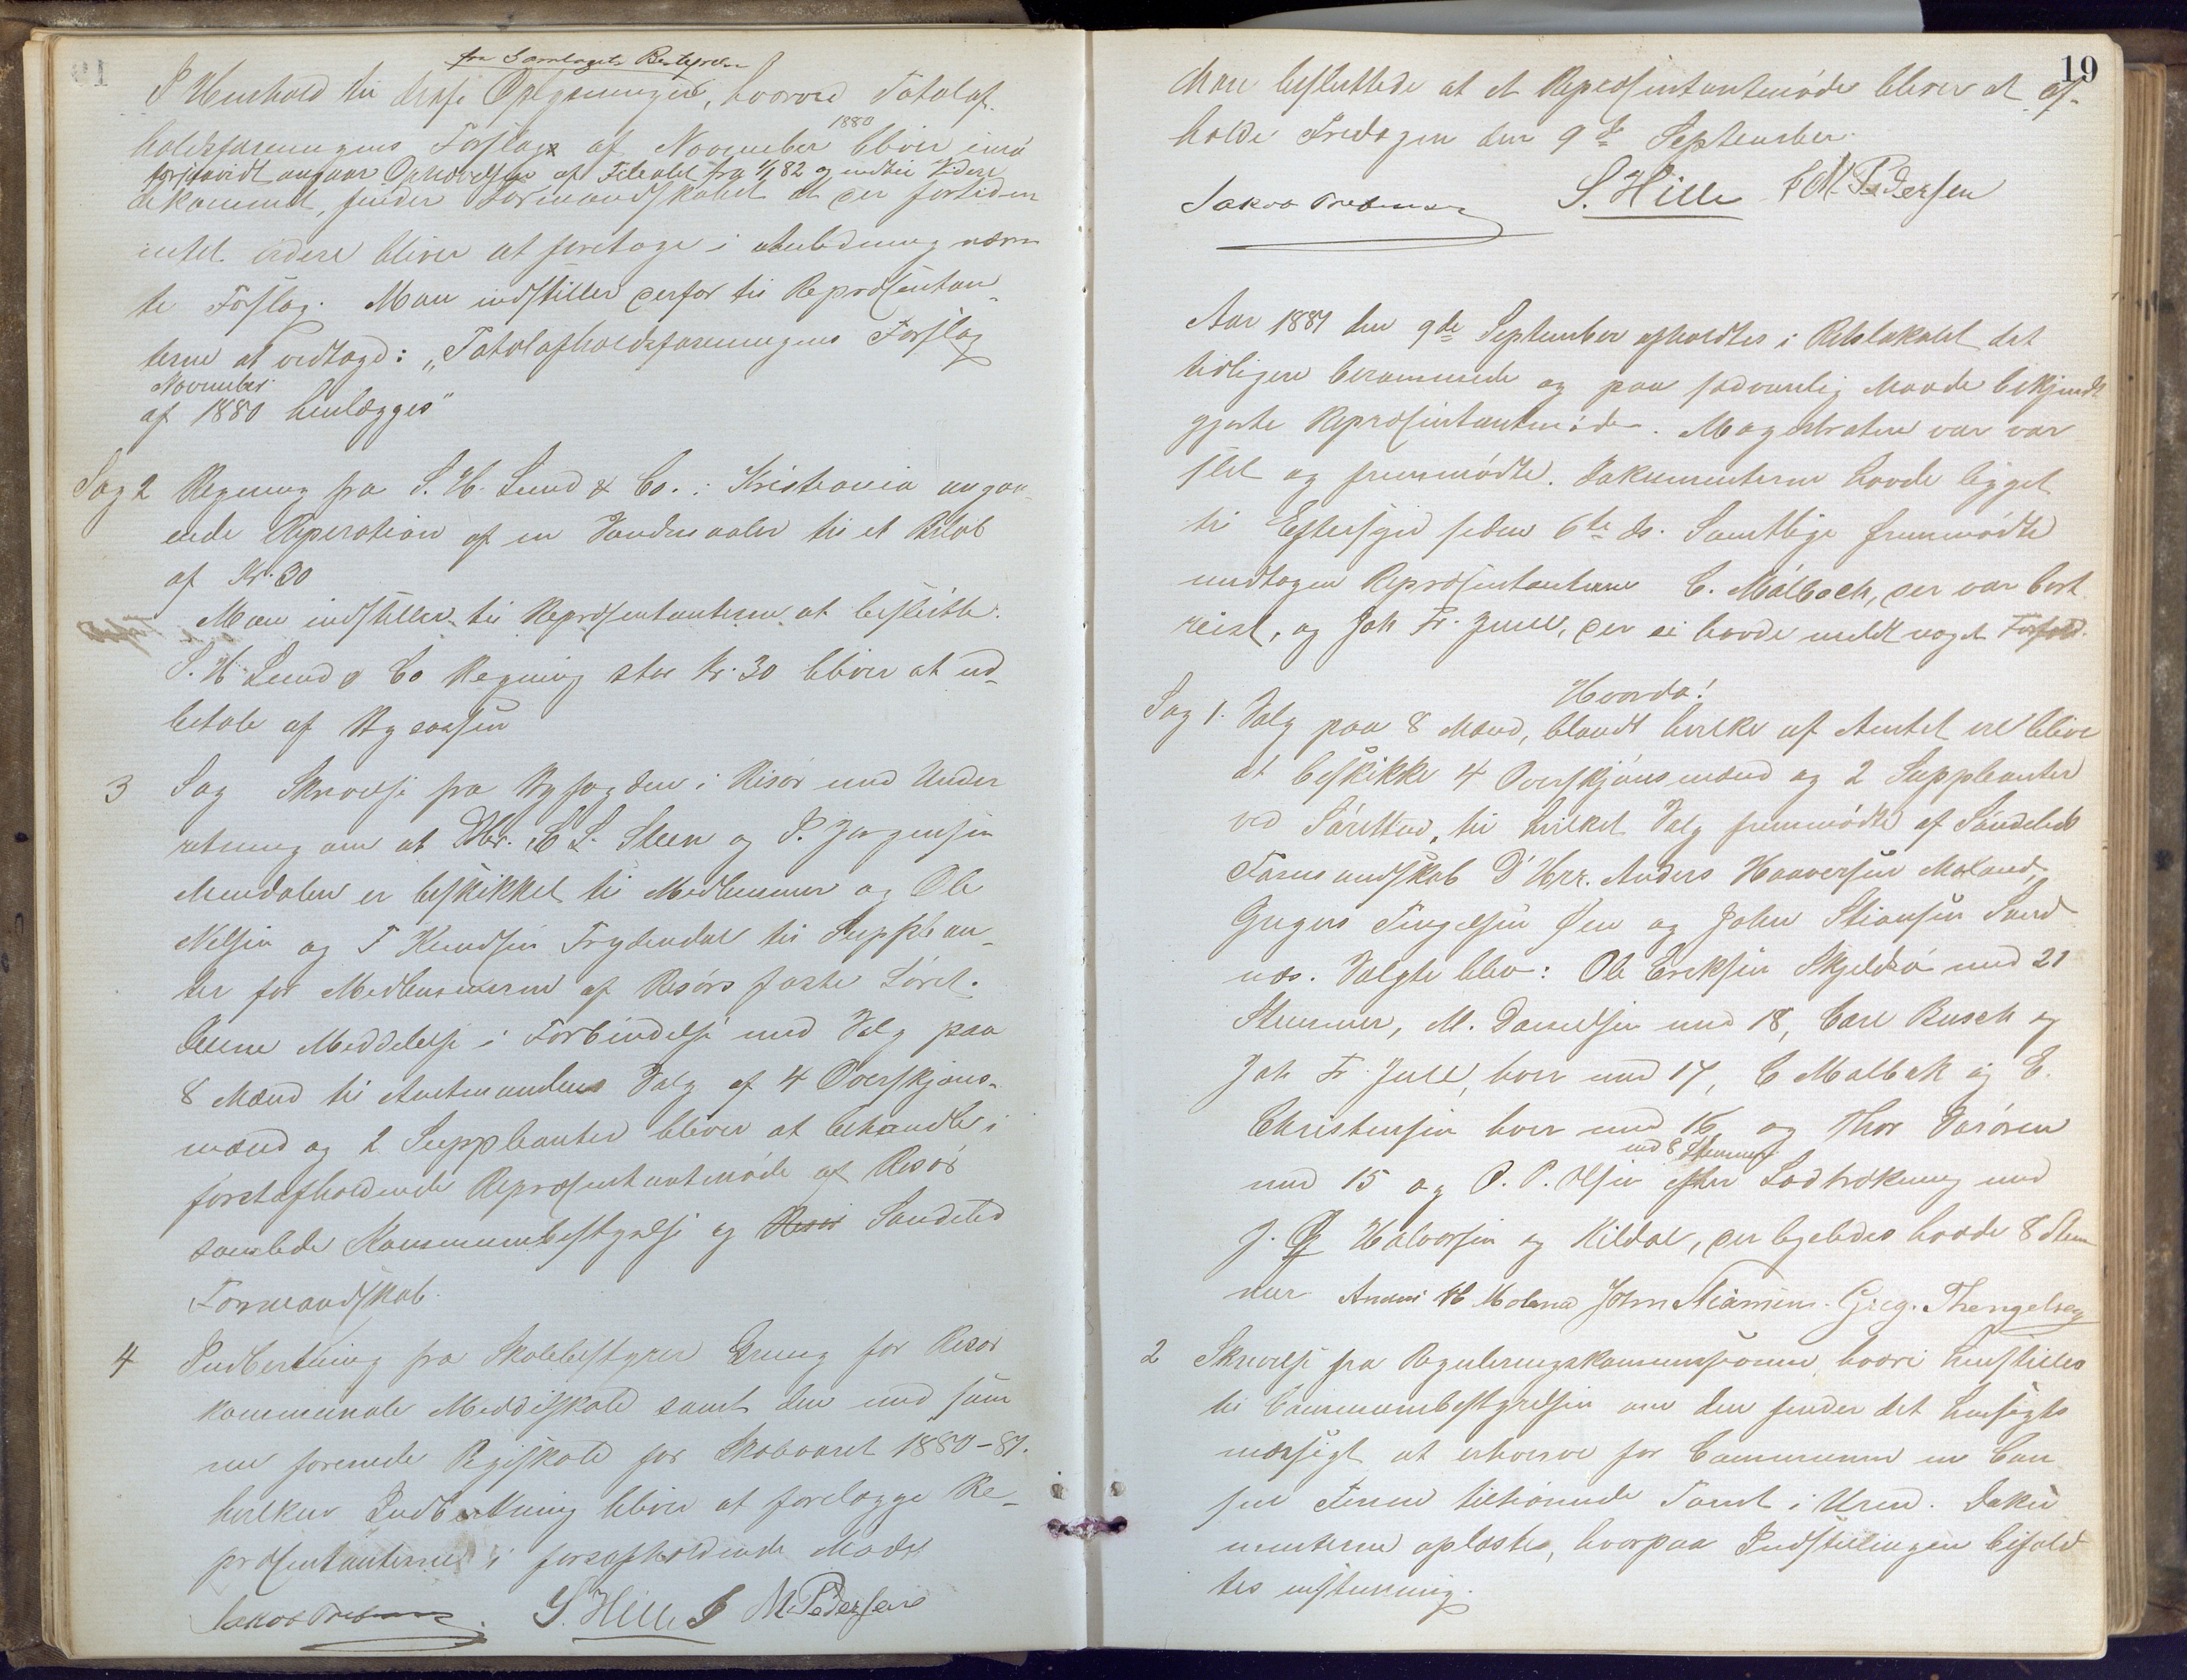 fra Samlagets Bestyrelse
I Henhold til disse Oplysninger, hvorved Totalaf-
holdsforeningens Forslag af November 1880 bliver imø-
forsaavidt angaar Ophævelsen af Filialet fra 1/1 82 og indtil Videre
dekommet, finder Formandskabet at der fortiden
intet videre bliver at foretage i Anledning nævn
te Forslag. Man indstiller derfor til Repræsentan-
terne at vedtage: „Totalafholdsforeningens Forslag
November
af 1880 henlægges"
Sag 2 Regning fra S. H. Lund & Co. i Kristiania angaa-
ende Reperation af en Vandmaaler til et Beløb
af Kr. 30
Man indstiller til Repræsentanterne at beslutte:
S. H. Lund & Co Regning stor Kr. 30 bliver at ud-
betale af Bycassen
3 Sag Skrivelse fra Byfogden i Risør med Under
retning om at DHr. L. Steen og P. Jørgensen
Mindalen er beskikket til Medlemmer og Ole
Nilsen og T Knudsen Trydendal til Supplean-
ter for Medlemmerne af Risørs faste Søret.
Denne Meddelelse i Forbindelse med Valg paa
8 Mænd til Amtmandens Valg af 4 Overskjøns-
mænd og 2 Suppleanter bliver at behandle i
førstafholdende Repræsentantmøde af Risør
samlede Kommunebestyrelse og Risør Søndeled
Formandskab.
4 Indberetning fra Skolebestyrer Grung for Risør
kommunale Middelskole samt den med sam
me forenede Pigeskole for Skoleaaret 1880-81.
hvilken Indberetning bliver at forelægge Re-
præsentanterne i førstafholdende Møde
S. Hille M. Pedersen
19
Man besluttede at et Repræsentantmøde bliver at af-
holde Fredagen den 9de September.
S. Hille M. Pedersen
Aar 1881 den 9de September afholdtes i Retslokalet det
tidligere berammede og paa sædvanlig Maade bekjendt
gjorte Repræsentantmøde. Magistraten var var
slet og fremmødte. Dokumenterne havde ligget
til Eftersyn siden 6te ds. Samtlige fremmødte
undtagen Repræsentanterne C. Malbach, der var bort
reist, og Joh Fr. Juell, der ei havde meldt noget Forfald.
Hvorda!
Sag 1. Valg paa 8 Mænd, blandt hvilke af Amtet vil blive
at beskikke 4 Overskjønsmænd og 2 Suppleanter
ved Søretten, til hvilket Valg fremmødte af Søndeled
Formandskab D'Hrr. Anders Haaversen Moland,
Gregers Tingelsen Øen og John Stiansen Sand
næs. Valgte blev: Ole Eriksen Skjeldsø med 21
Stemmer, M. Danielsen med 18, Carl Busch og
Joh Fr. Juell, hver med 17, C Malbak og E.
Christensen hver med 16 og Thor Sørøren
med 8 Stemmer
med 15 og O. P. Olsen efter Lodtrækning med
J. G Halvorsen og Kildal, der ligeledes havde 8 Stem
mer Anders H Moland John Stiansen. Greg. Thengelsen
2 Skrivelse fra Reguleringskommissionen hvori henstilles
til Communebestyrelsen om den finder det hensigts
mæssigt at erhverve for Communen en Con
sul Finne tilhørende Tomt i Uren. Doku
menterne oplæstes, hvorpaa Indstillingen bifald
tes enstemmig.